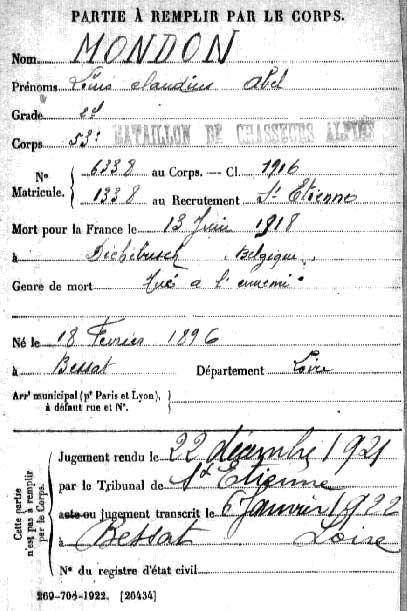 PARTIE À REMPLIR PAR LE CORPS.
Nom MONDON
Prénoms Louis Claudius Abel
Grade
Corps 53e BATAILLON DE CHASSEURS ALPINS
N° 6338 au Corps. — Cl. 1916
Matricule. 1338 au Recrutement St Etienne
Mort pour la France le 13 Juin 1918
à Dickebusch Belgique
Genre de mort Tué a l'ennemi
Né le 18 Fevrier 1896
à Bessat Département Loire
Arrt municipal (pr Paris et Lyon),
à défaut rue et N°.
Cette partie
n'est pas à remplir
par le Corps.
Jugement rendu le 22 décembre 1921
par le Tribunal de St Etienne
acte ou jugement transcrit le 6 Janvier 1922
à Bessat Loire
N° du registre d'état civil
269-708-1922. [26434]